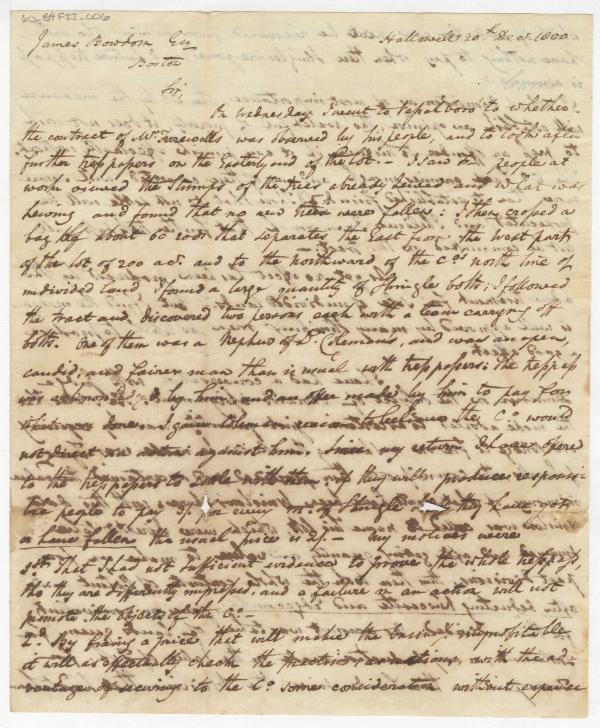 60_BHF12_006
James Bowdoin Esq Hallowell 20th Decr. 1800
Boston
Sir,
On Wednesday I went to Vassalboro to whether
the contract of Mr. was observed by his people, and to look after
further trespassers on the Easterly end of the lot. – I saw people at
work viewed the stumps of the trees already hewed and what was
hewing and found that no new trees were fallen: I then crossed a
bog about 60 rods that separates the East from the West part
of the lot of 200 acs. and to the northward of the Co. north line of
undivided land, I found a large quantity of shingle bolts; I followed
the tract and discovered two persons each with a team carrying off
bolts. One of them was a Nephew of Dr. Colemans, and was an open,
candid, and fairer man than is usual with trespassers; the trespass
was acknowledged by him and an offer made by him to pay for
what was done. I gave him reason to believe the Co. would
not direct an action against him. Since my return I have offered
to the trespassers to settle with them if they will produce responsi-
ble people to pay 3/ for every m. of shingle they have got
or have fallen the usual price is 2/. – my motives were
1st. That I had not sufficient evidence to prove the whole trespass,
tho' they are differently impressed, and a failure in an action will not
promote the objects of the Co. –
2d. By fixing a price that will make the business unprofitable
it will as effectually check the practice as actions, with the ad-
vantage of securing to the Co. some consideration without expence